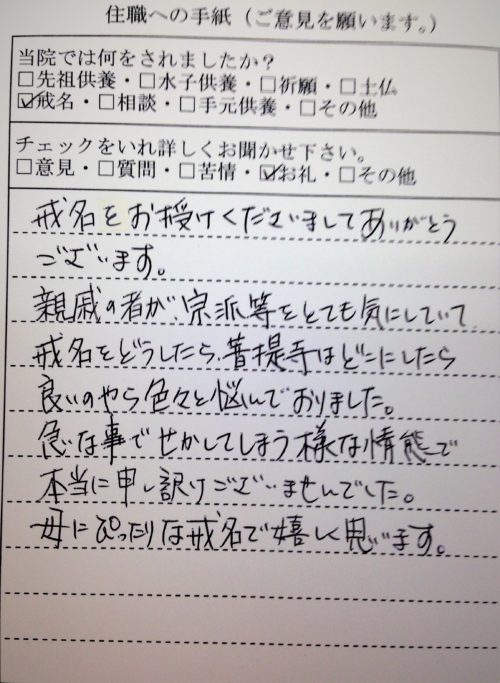 住職への手紙（ご意見を願います。）
当院では何をされましたか？
□先祖供養・□水子供養・□祈願・□土仏
☑戒名・□相談・□手元供養・□その他
チェックをいれ詳しくお聞かせ下さい。
□意見・□質問・□苦情・☑お礼・□その他
戒名をお授けくださいましてありがとう
ございます。
親戚の者が、宗派等をとても気にしていて
戒名をどうしたら、菩提寺はどこにしたら
良いのやら色々と悩んでおりました。
急な事でせかしてしまう様な情態で
本当に申し訳けございませんでした。
母にぴったりな戒名で嬉しく思います。